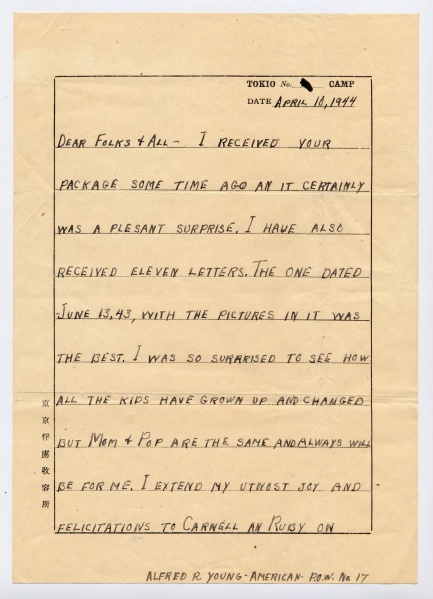 TOKIO No. CAMP
DATE APRIL 10, 1944
DEAR FOLKS & ALL - I RECEIVED YOUR
PACKAGE SOME TIME AGO AN IT CERTAINLY
WAS A PLESANT SURPRISE. I HAVE ALSO
RECEIVED ELEVEN LETTERS. THE ONE DATED
JUNE 13, 43, WITH THE PICTURES IN IT WAS
THE BEST. I WAS SO SURPRISED TO SEE HOW
ALL THE KIDS HAVE GROWN UP AND CHANGED
BUT MOM & POP ARE THE SAME AND ALWAYS WILL
BE FOR ME. I EXTEND MY UTMOST JOY AND
FELICITATIONS TO CARNELL AN RUBY ON
東京俘虜收容所
ALFRED R. YOUNG - AMERICAN - P.O.W. No 17